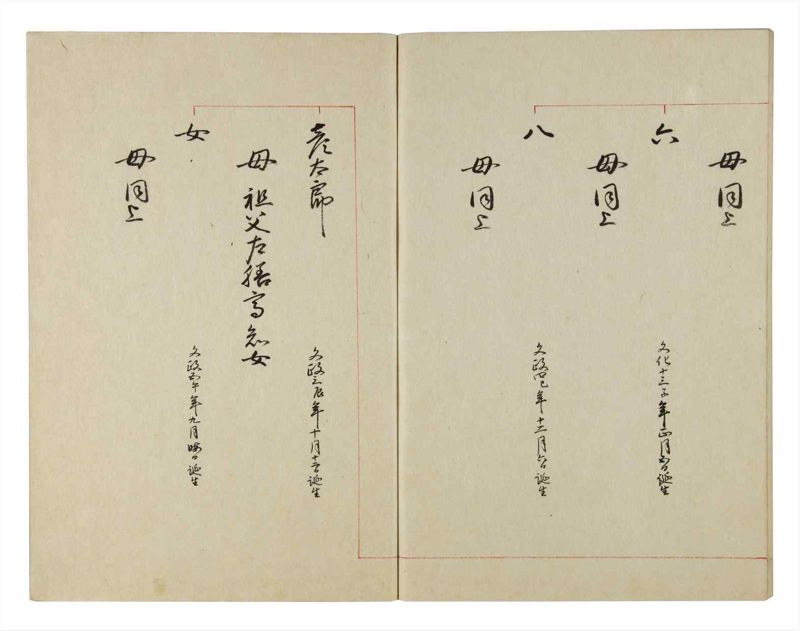 母同上
六
文化十三子年正月五日誕生
母同上
八
文政四巳年十二月六日誕生
母同上
彦太郎
文政三辰年十月十一日誕生
母祖父左膳高忽女
女
文政五午年九月晦日誕生
母同上